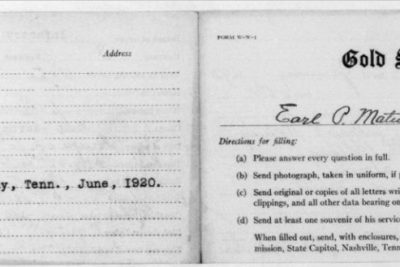 Address
y, Tenn., June, 1920.
FORM W-N-1
Gold S
Earl P. Matu
Directions for filling:
(a) Please answer every question in full.
(b) Send photograph, taken in uniform, if p
(c) Send original or copies of all letters wri
clippings, and all other data bearing on
(d) Send at least one souvenir of his servic
When filled out, send, with enclosures,
mission, State Capitol, Nashville, Tenn